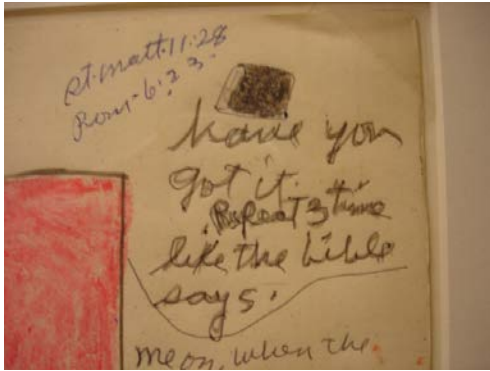 St. Matt. 11:28
Rom-6:23.
have you
got it.
Repeat 3 time
like the bible
says.
me on, when the